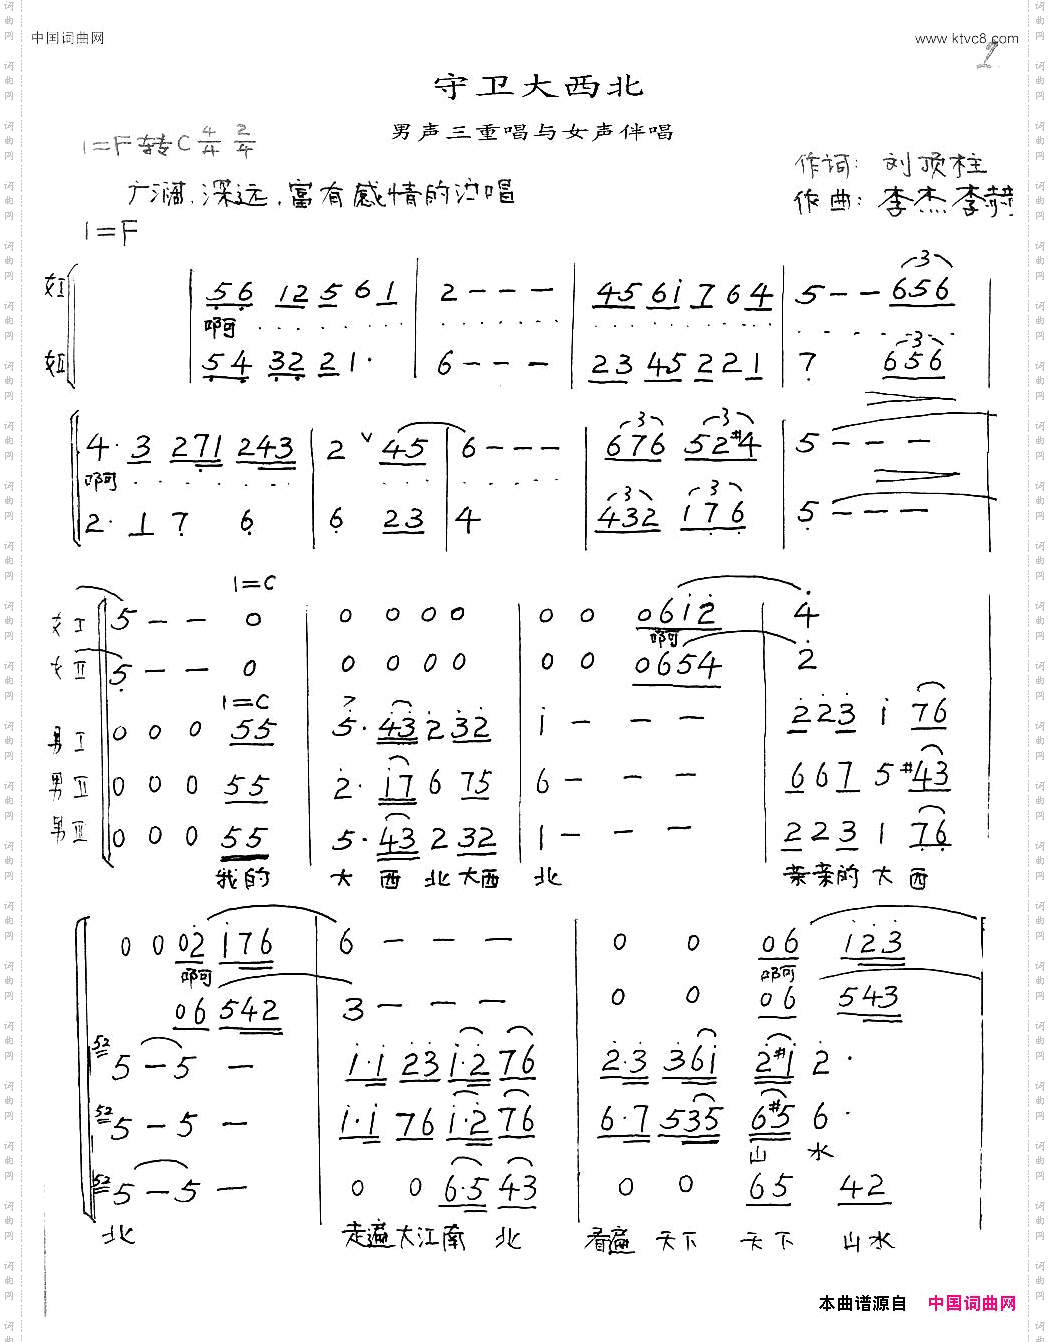 中国词曲网 www.ktvc8.com
守卫大西北
男声三重唱与女声伴唱
1=F转C 4/4 2/4
作词: 刘顶柱
广阔、深远、富有感情的
作曲: 李杰 李
1=F
女I 56 12 5 6 1 | 2 - - - | 45 6i 7 6 4 | 5 - - 656
啊
女II 54 32 2 1· | 6 - - - | 23 45 2 2 1 | 7 656
4· 3 271 243 | 2 ∨ 45 | 6 - - - | 676 52#4 | 5 - - -
啊
2· 1 7 6 | 6 23 | 4 | 432 176 | 5 - - -
1=C
女I 5 - - 0 | 0 0 0 0 | 0 0 06i2 | 4
啊
女II 5 - - 0 | 0 0 0 0 | 0 0 0654 | 2
1=C
男I 0 0 0 55 | 5· 43 2 32 | i - - - | 2 2 3 i 76
男II 0 0 0 55 | 2· i7 6 75 | 6 - - - | 6 6 7 5 #43
男III 0 0 0 55 | 5· 43 2 32 | 1 - - - | 2 2 3 1 76
我的 大 西 北 大西 北 亲亲的 大 西
0 0 02 i76 | 6 - - - | 0 0 06 i23
啊 啊
06 542 | 3 - - - | 0 0 06 543
52 5 - 5 - | i·i 23 i·2 76 | 2·3 36i 2#i 2·
52 5 - 5 - | i·i 76 i·2 76 | 6·7 535 6#5 6·
山 水
52 5 - 5 - | 0 0 6·5 43 | 0 0 65 42
北 走遍大江南 北 看遍 天下 天下 山水
本曲谱源自 中国词曲网